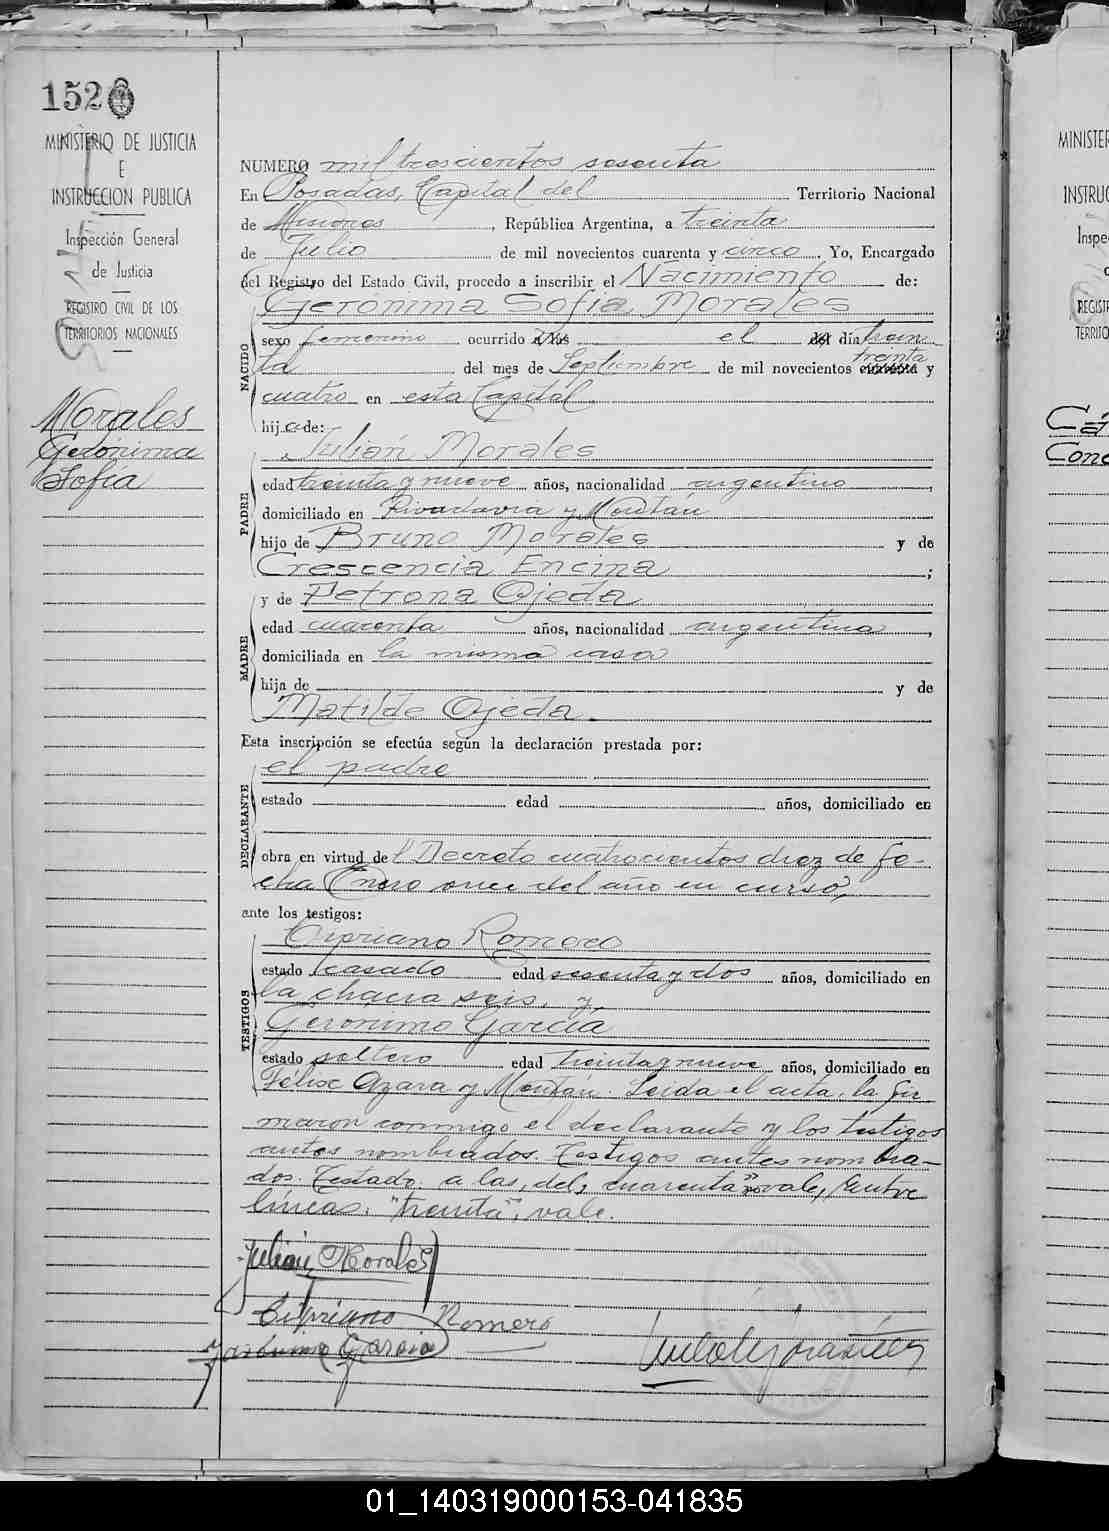 152
MINISTERIO DE JUSTICIA
E
INSTRUCCION PUBLICA
Inspección General
de Justicia
REGISTRO CIVIL DE LOS
TERRITORIOS NACIONALES
Morales
Gerónima
Sofía
NUMERO mil trescientos sesenta
En Posadas, Capital del Territorio Nacional
de Misiones, República Argentina, a treinta
de Julio de mil novecientos cuarenta y cinco. Yo, Encargado
del Registro del Estado Civil, procedo a inscribir el Nacimiento de:
Gerónima Sofía Morales
NACIDO
sexo femenino ocurrido a las el del día trein
treinta
ta del mes de Septiembre de mil novecientos cuarenta y
cuatro en esta Capital.
hija de:
Julián Morales
PADRE
edad treinta y nueve años, nacionalidad argentino,
domiciliado en Rivadavia y Montán
hijo de Bruno Morales y de
Crescencia Encina;
y de Petrona Ojeda
MADRE
edad cuarenta años, nacionalidad argentina,
domiciliada en la misma casa
hija de y de
Matilde Ojeda.
Esta inscripción se efectúa según la declaración prestada por:
el padre
DECLARANTE
estado edad años, domiciliado en
obra en virtud del Decreto cuatrocientos diez de fe-
cha Enero once del año en curso,
ante los testigos:
Cipriano Romero
TESTIGOS
estado casado edad sesenta y dos años, domiciliado en
la chacra seis, y
Geronimo García
estado soltero edad treinta y nueve años, domiciliado en
Félix Azara y Montán. Leida el acta, la fir
maron conmigo el declarante y los testigos
antes nombrados. Testigos antes nombra-
dos. Testado: a las, del, cuarenta no vale, Entre
líneas: "treinta", vale.
Julian Morales
Cipriano Romero
Jerónimo Garcia
MINISTER
INSTRUC
Inspe
REGISTR
TERRITO
Conc
01_140319000153-041835